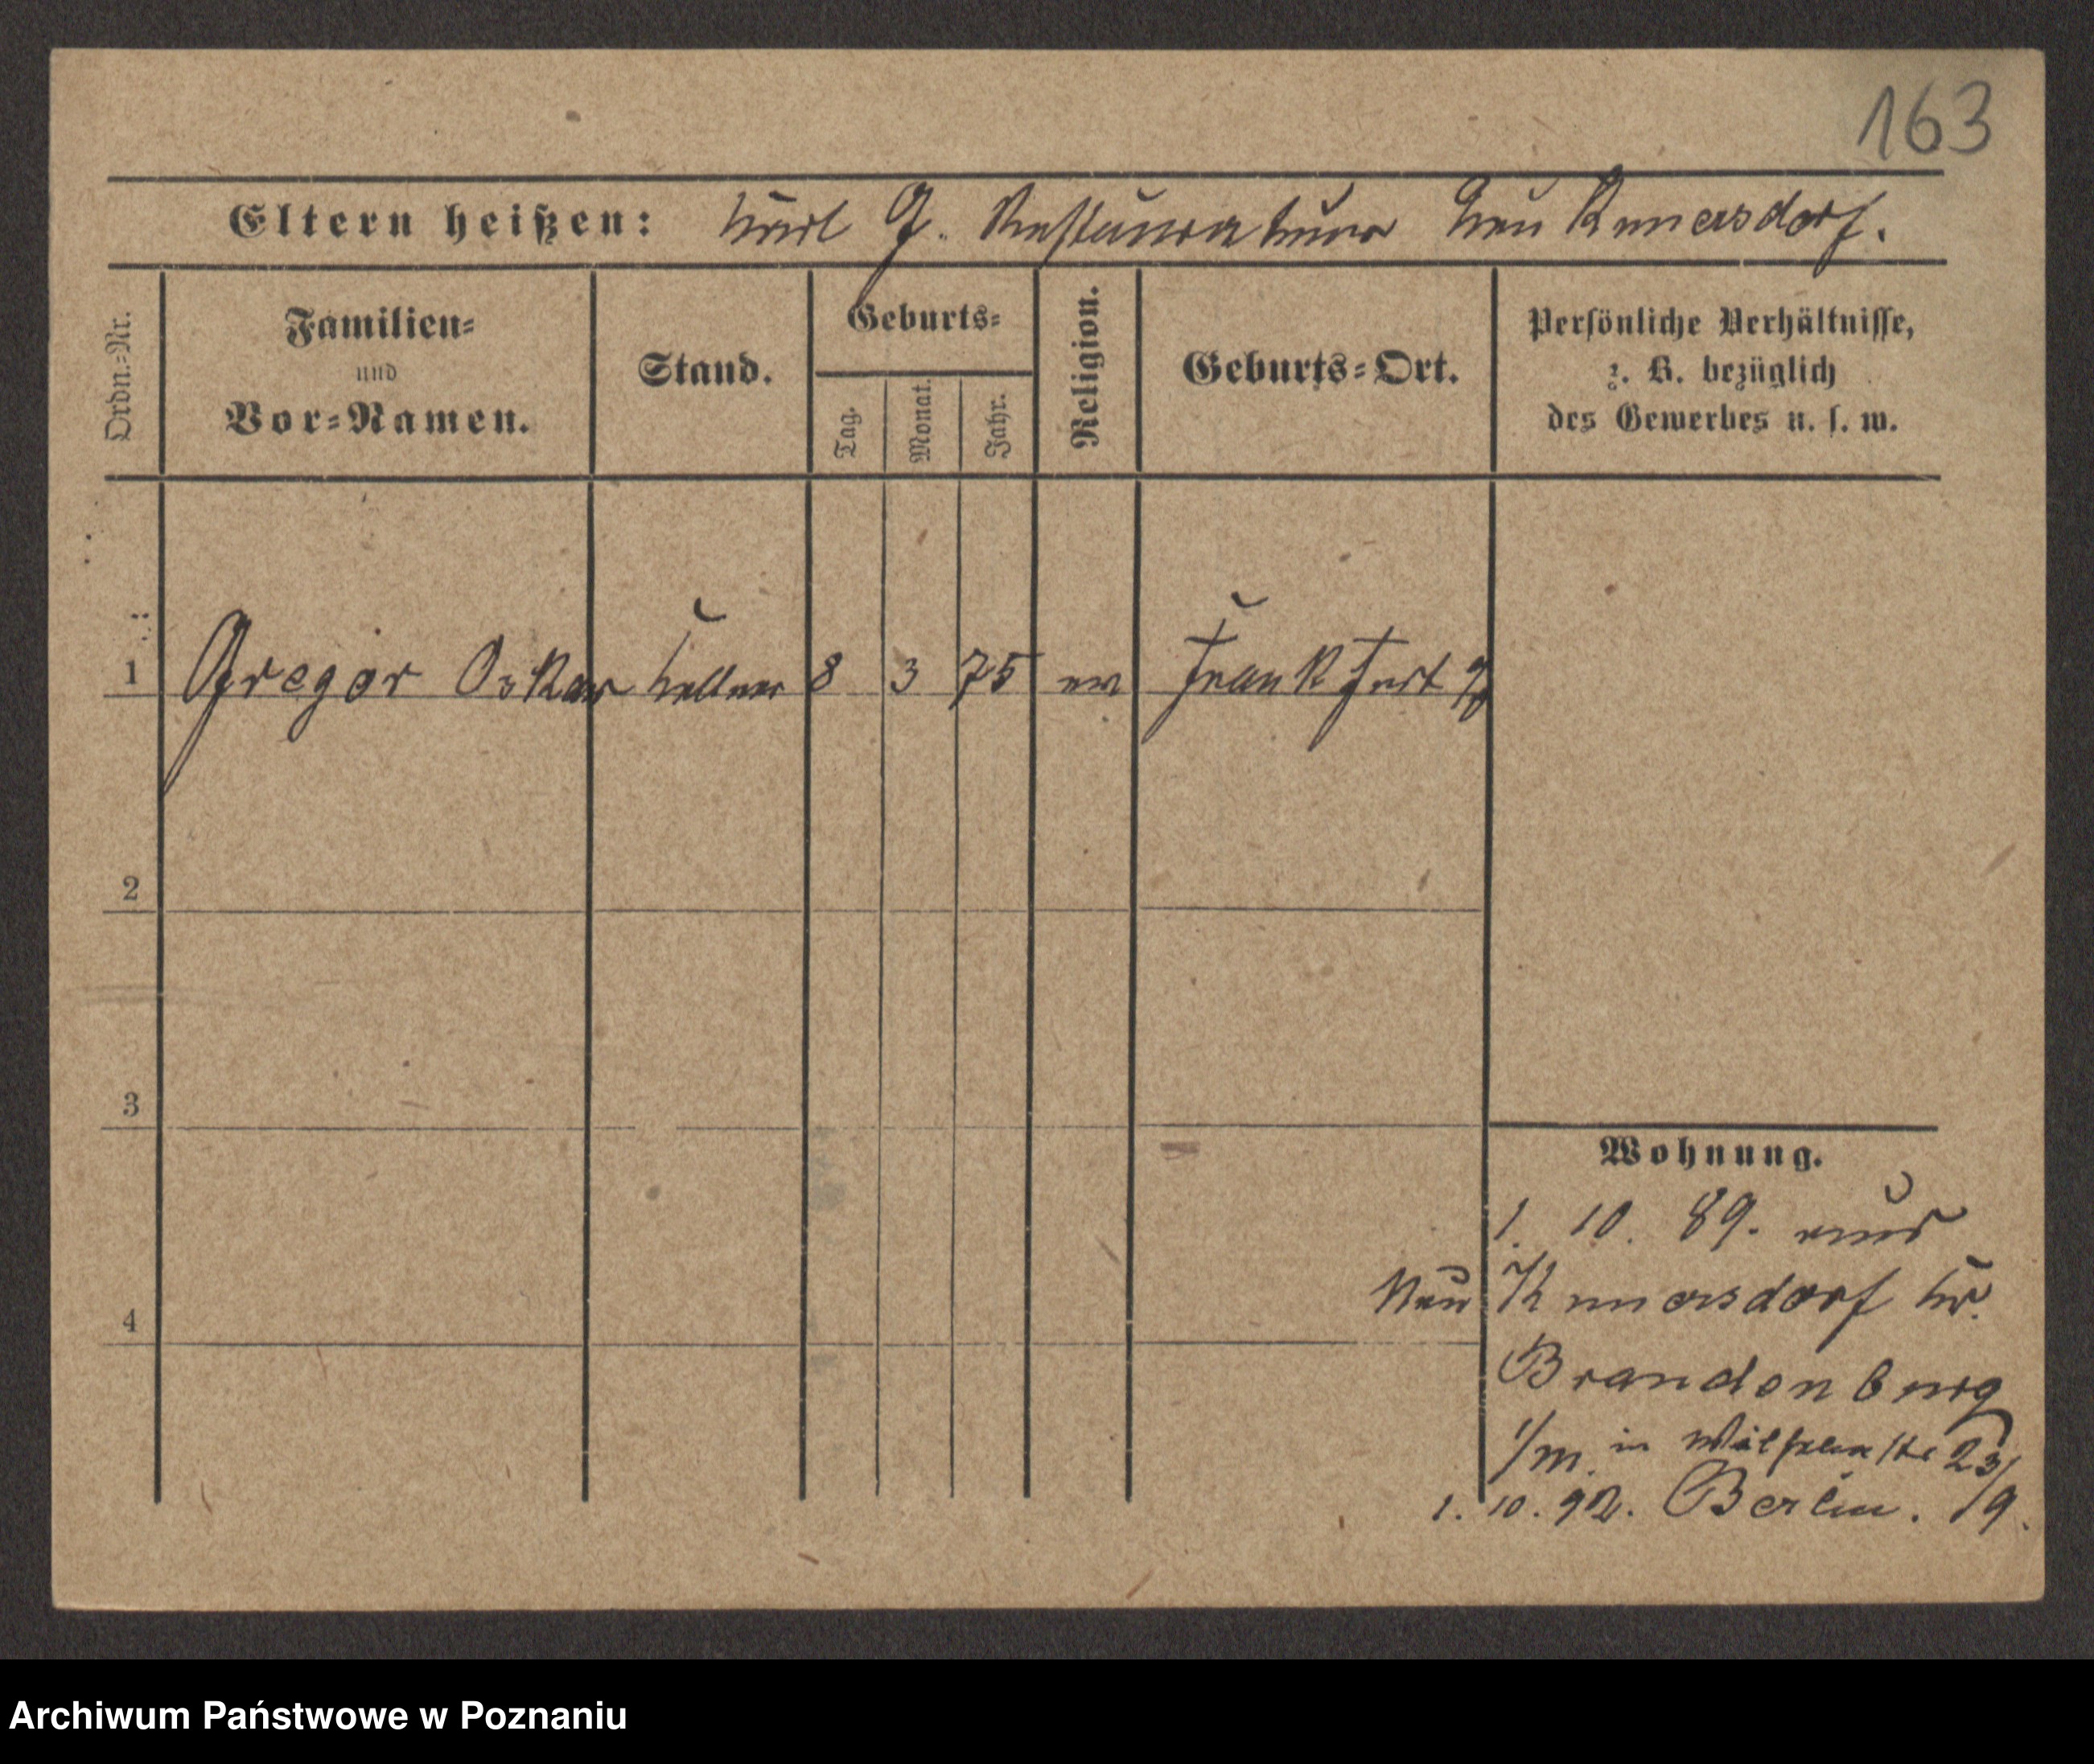 163
Eltern heißen: Karl G. Restaurateur Neu Kunersdorf.
Ordn.=Nr.
Familien=
und
Vor=Namen.
Stand.
Geburts=
Tag.
Monat.
Jahr.
Religion.
Geburts=Ort.
Persönliche Verhältnisse,
z. B. bezüglich
des Gewerbes u. s. w.
1 Gregor Oskar Kellner 8 3 75 ev Frankfurt
2
3
4
Wohnung.
1. 10. 89. aus
Neu Kunersdorf Kr.
Brandenburg
in 23/
1. 10. 92. Berlin. 9.
Archiwum Państwowe w Poznaniu